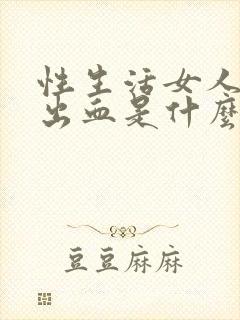 性生活女人
出血是什麼
豆豆麻麻